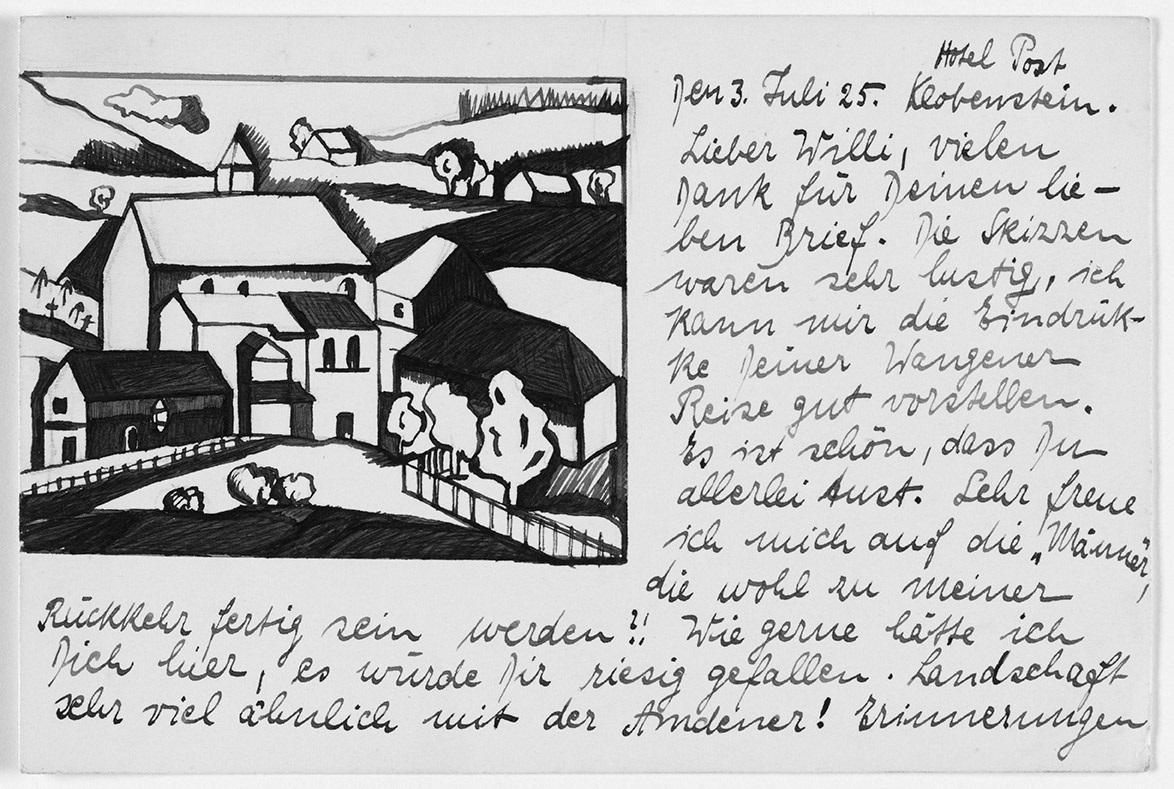 Hotel Post
Den 3. Juli 25. Klobenstein.
Lieber Willi, vielen
Dank für Deinen lie-
ben Brief. Die Skizzen
waren sehr lustig, ich
kann mir die Eindrük-
ke Deiner Wangener
Reise gut vorstellen.
Es ist schön, dass Du
allerlei tust. Sehr freue
ich mich auf die „Männer",
die wohl zu meiner
Rückkehr fertig sein werden?!! Wie gerne hätte ich
Dich hier, es würde Dir riesig gefallen. Landschaft
sehr viel ähnlich mit der Amdener! Erinnerungen